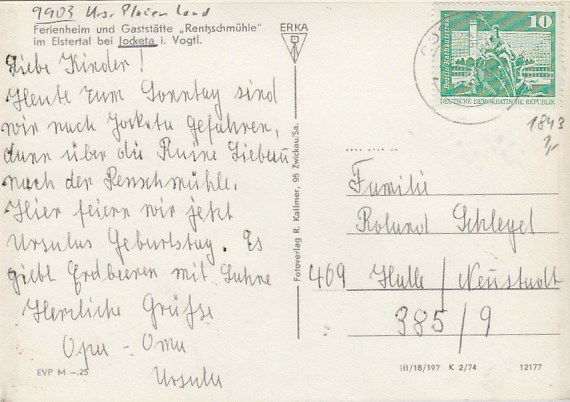 9903
Ferienheim und Gaststätte „Rentzschmühle"
im Elstertal bei Jocketa i. Vogtl.
ERKA
Liebe Kinder!
Heute zum Sonntag sind
wir nach Jocketa gefahren,
dann über die Ruine Liebau
nach der Renschmühle.
Hier feiern wir jetzt
Ursulas Geburtstag. Es
giebt Erdbeeren mit Sahne
Herzliche Grüsse
Opa - Oma
Ursula
EVP M -.25
Fotoverlag R. Kallmer, 95 Zwickau/Sa.
Berlin, Rathausstraße
10
DEUTSCHE DEMOKRATISCHE REPUBLIK
1843
Familie
Roland Schlegel
409 Halle/Neustadt
385/9
III/18/197 K 2/74 12177